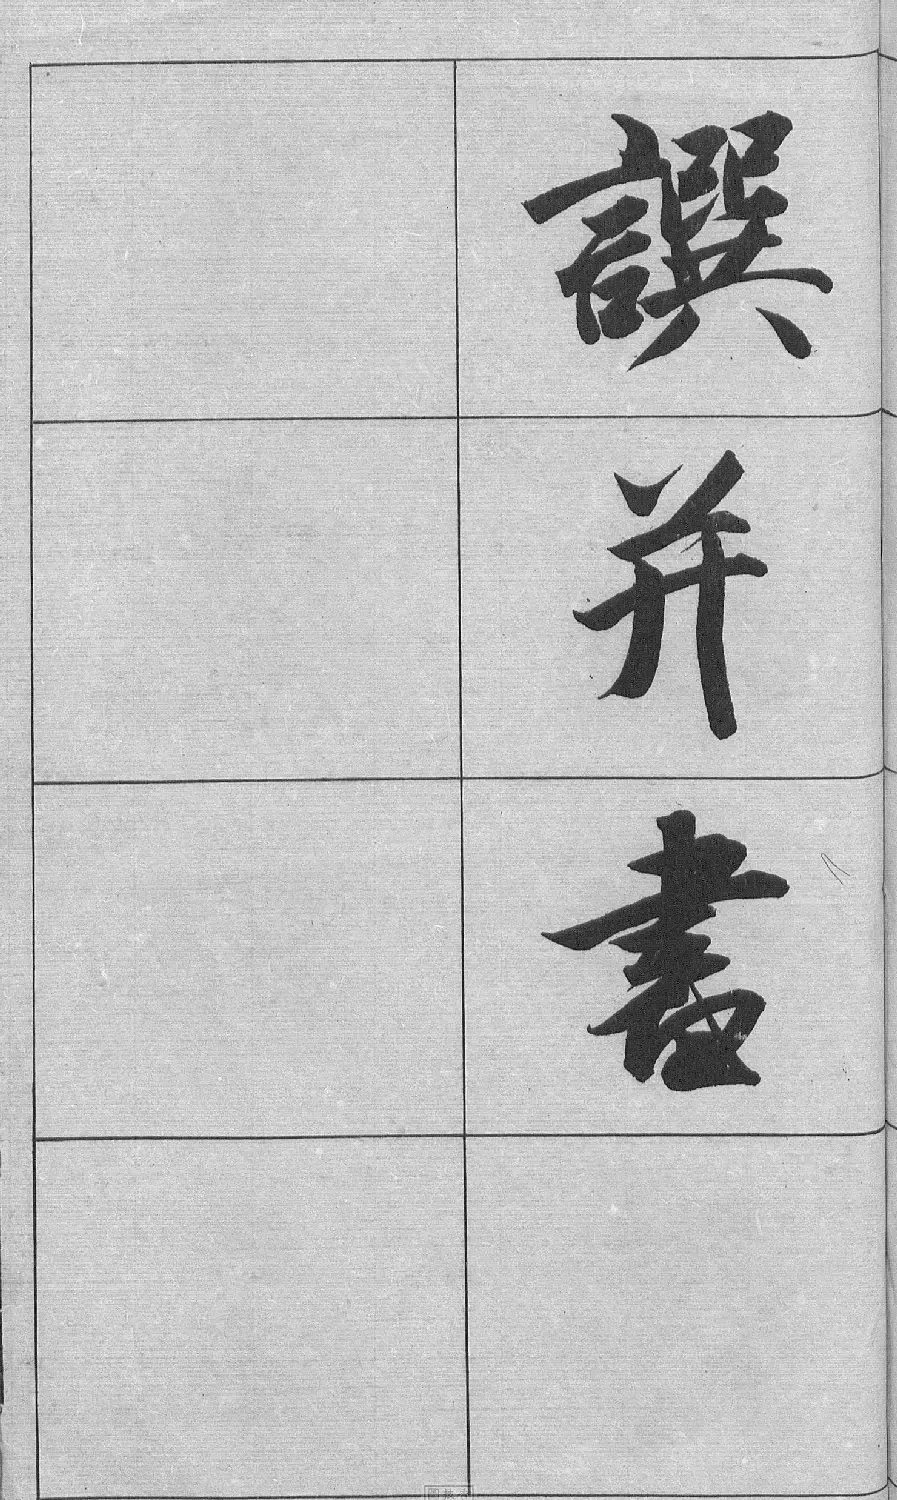 譔并書